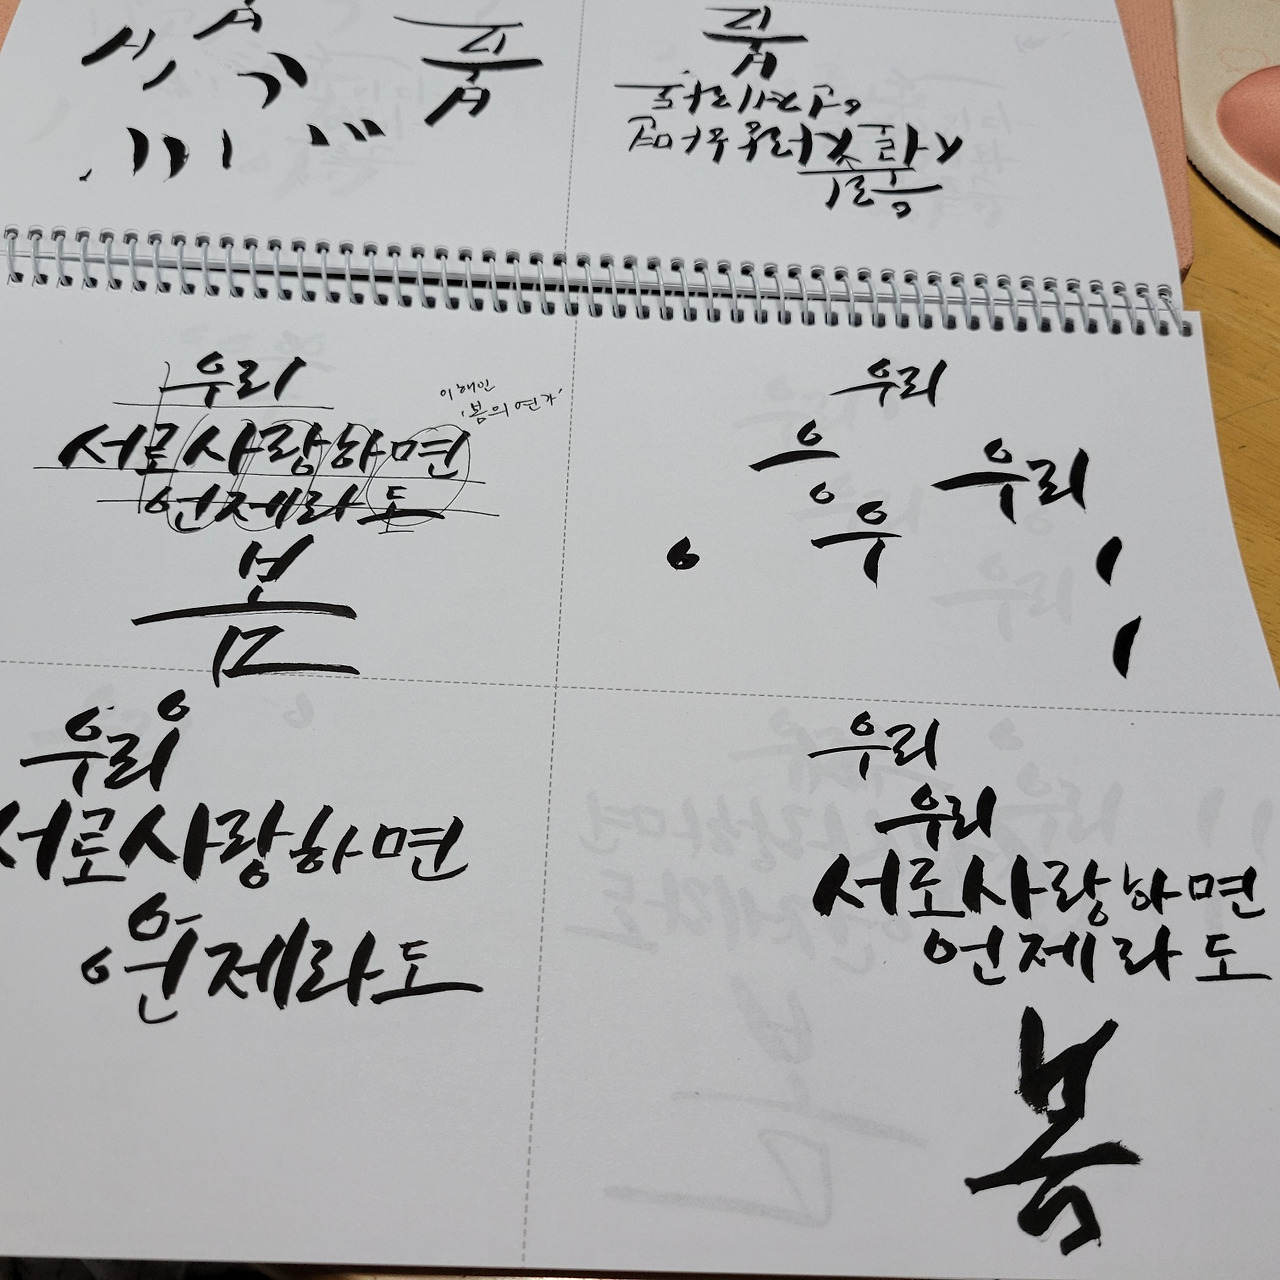 봄
우리
서로사랑하면
언제라도
봄
우리
서로사랑하면
언제라도
봄
이해인
'봄의 연가'
우리
으
우리
우
우리
서로사랑하면
언제라도
우리
우리
서로사랑하면
언제라도
봄